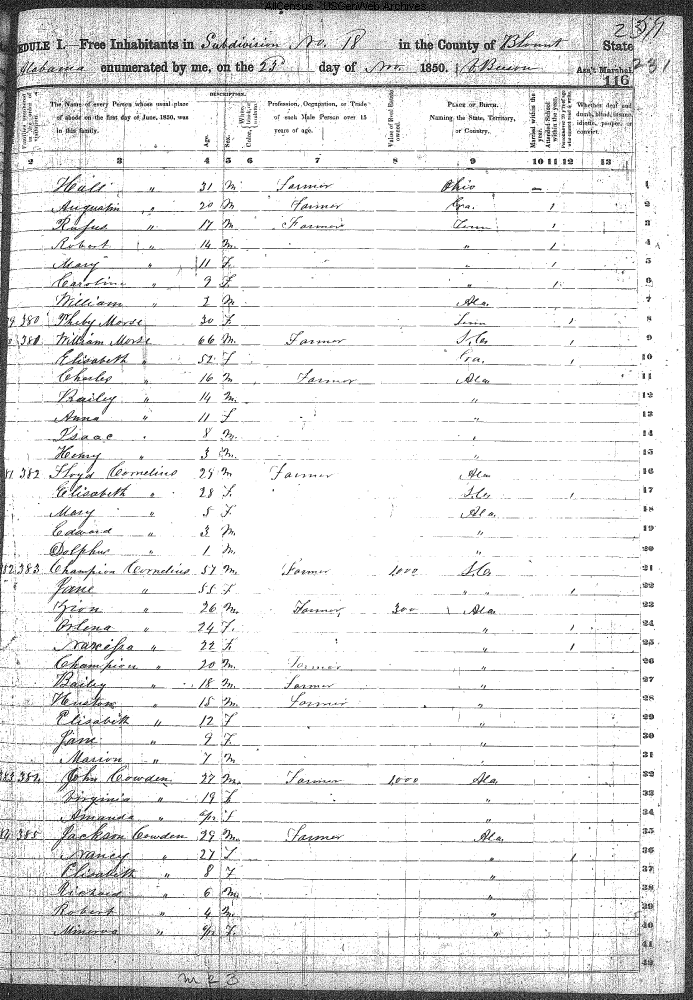 AllCensus USGenWeb Archives
239
EDULE I.—Free Inhabitants in Subdivision No. 18 in the County of Blount State
Alabama enumerated by me, on the 25 day of Nov. 1850. Ass't Marshal 231
116
DESCRIPTION.
The Name of every Person whose usual place of abode on the first day of June, 1850, was in this family.
Age.
Sex.
Profession, Occupation, or Trade of each Male Person over 15 years of age.
Value of Real Estate owned.
PLACE OF BIRTH. Naming the State, Territory, or Country.
Married within the year.
Attended School within the year.
Whether deaf and dumb, blind, insane, idiotic, pauper, or convict.
2 3 4 5 6 7 8 9 10 11 12 13
" 31 M Farmer Ohio 1
Augustin " 20 M Farmer Geo. 1 2
Rufus " 17 M Farmer Tenn 1 3
Robert " 14 M. " 1 4
Mary " 11 F. " 1 5
Caroline " 9 F. " 1 6
William " 2 M Ala. 7
380 Pheby Morse 30 F. Tenn 1 8
381 William Morse 66 M. Farmer S.C. 1 9
Elisabeth " 52 F Geo. 1 10
Charles " 16 M Farmer Ala 11
Bailey " 14 M. " 12
Anna " 11 F " 13
Isaac " 8 M. " 14
Henry " 3 M. " 15
81 382 Floyd Cornelius 29 M Farmer Ala 16
Elisabeth " 28 F. S.C. 1 17
Mary " 5 F Ala. 18
Edward " 3 M " 19
Dolphus " 1 M. " 20
82 383 Champion Cornelius 57 M. Farmer 1,000 S.C. 21
Jane " 55 F " " 1 22
Zion " 26 M. Farmer, 300 Ala 23
" 24 F. " 1 24
Narcissa " 22 F. " 1 25
Champion " 20 M. Farmer " 26
Bailey " 18 M. Farmer " 27
Huston " 15 M. Farmer " 28
Elisabeth " 12 F " 29
Jane " 9 F. " 30
Marion " 7 M " 31
383 384 John Cowden 27 M. Farmer 1,000 Ala. 32
Virginia " 19 F. " 33
Amanda " F " 34
84 385 Jackson Cowden 29 M. Farmer Ala. 35
Nancy " 27 F " 1 36
Elisabeth " 8 F " 37
Richard " 6 M. " 38
Robert " 4 M. " 39
Minerva " F. " 40
41
42
M 23